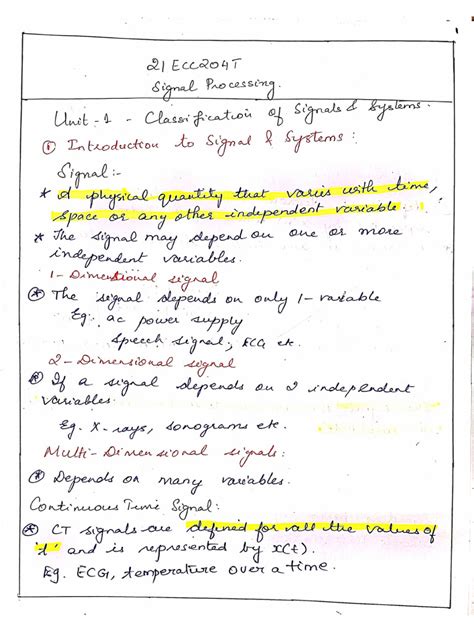 21ECC204T
Signal Processing.
Unit-1 - Classification of Signals & Systems.
① Introduction to Signal & Systems:
Signal:-
* A physical quantity that varies with time,
space or any other independent variable.
* The signal may depend on one or more
independent variables.
1-Dimensional signal
* The signal depends on only 1-variable
Eg: ac power supply
speech signal, ECG etc.
2-Dimensional signal
* If a signal depends on 2 independent
variables.
Eg. X-rays, sonograms etc.
Multi-Dimensional signals:
* Depends on many variables.
Continuous Time Signal:
* CT signals are defined for all the values of
't' and is represented by x(t).
Eg. ECG, temperature over a time.